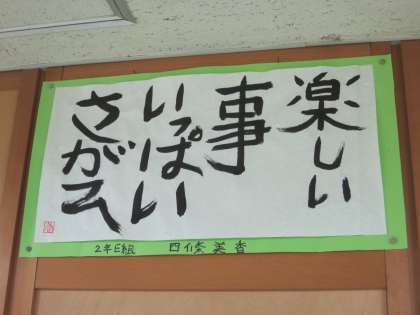 楽しい
事
いっぱい
さがそ
2年E組 四條美香